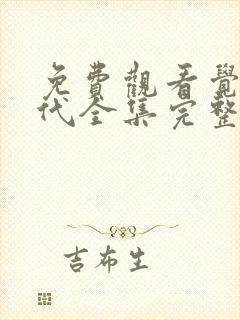 免費觀看覺
代全集完整
吉布生